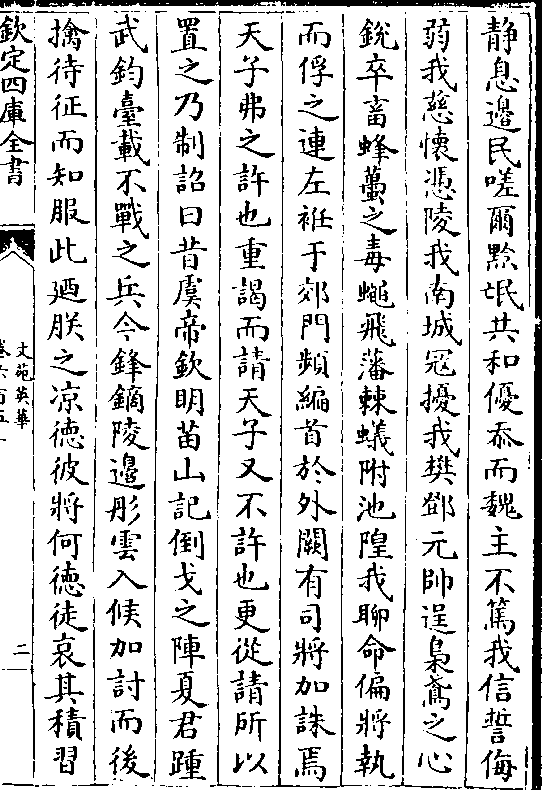 静息邊民嗟爾黔氓共和優忝而魏主不篤我信誓侮
弱我慈懷憑陵我南城冦擾我樊鄧元帥逞梟鳶之心
銳卒畜蜂蠆之毒蠅飛藩棘蟻附池隍我聊命偏將執
而俘之連左袵于郊門頻編首於外闕有司將加誅焉
天子弗之許也重謁而請天子又不許也更從請所以
置之乃制詔曰昔虞帝欽明苗山記倒戈之陣夏君踵
武鈞臺載不戰之兵今鋒鏑陵邊彤雲入候加討而後
擒待征而知服此廼朕之凉徳彼將何徳徒哀其積習
欽定四庫全書
文苑英華
卷六百五
二